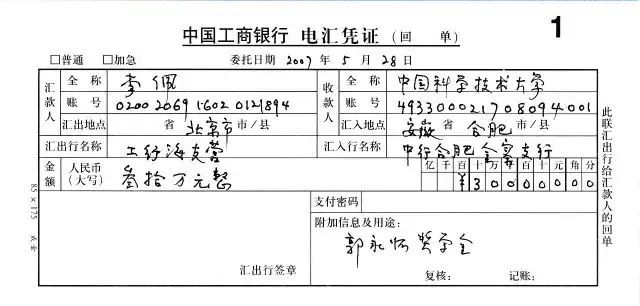 中国工商银行 电汇凭证（回 单） 1
□普通 □加急 委托日期 2007 年 5 月 28 日
汇款人 全 称 李佩 收款人 全 称 中国科学技术大学
账 号 0200206916020121894 账 号 493300021708094001
汇出地点 省 北京市 市/县 汇入地点 安徽 省 合肥 市/县
汇出行名称 工行海克营 汇入行名称 中行合肥金寨支行
金额 人民币（大写） 叁拾万元整 亿 千 百 十 万 千 百 十 元 角 分
¥30000000
支付密码
附加信息及用途：
郭永怀奖学金
汇出行签章 复核： 记账：
此联汇出行给汇款人的回单
85×175